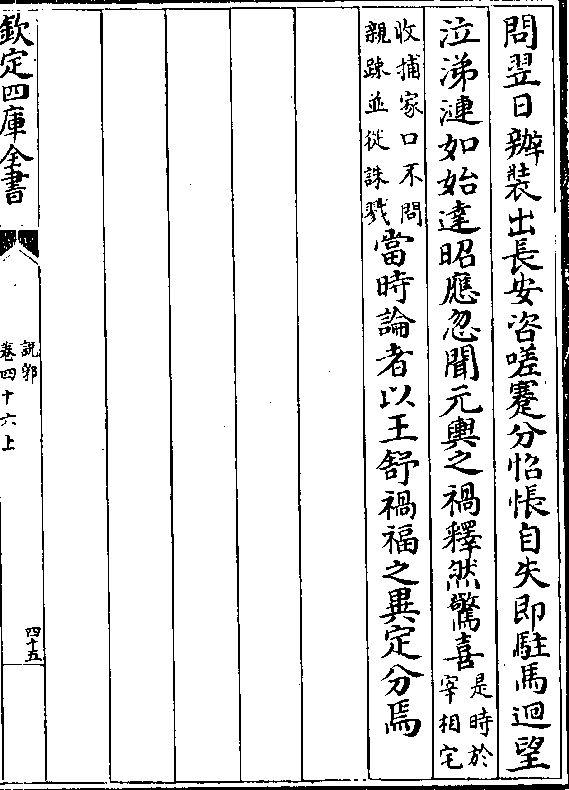 問翌日辦裝出長安咨嗟蹇分怊悵自失即駐馬迴望
泣涕漣如始達昭應忽聞元輿之禍釋然驚喜是時於宰相宅
收捕家口不問親疎並從誅戮當時論者以王舒禍福之異定分焉
欽定四庫全書
說郛
卷四十六上
四十五